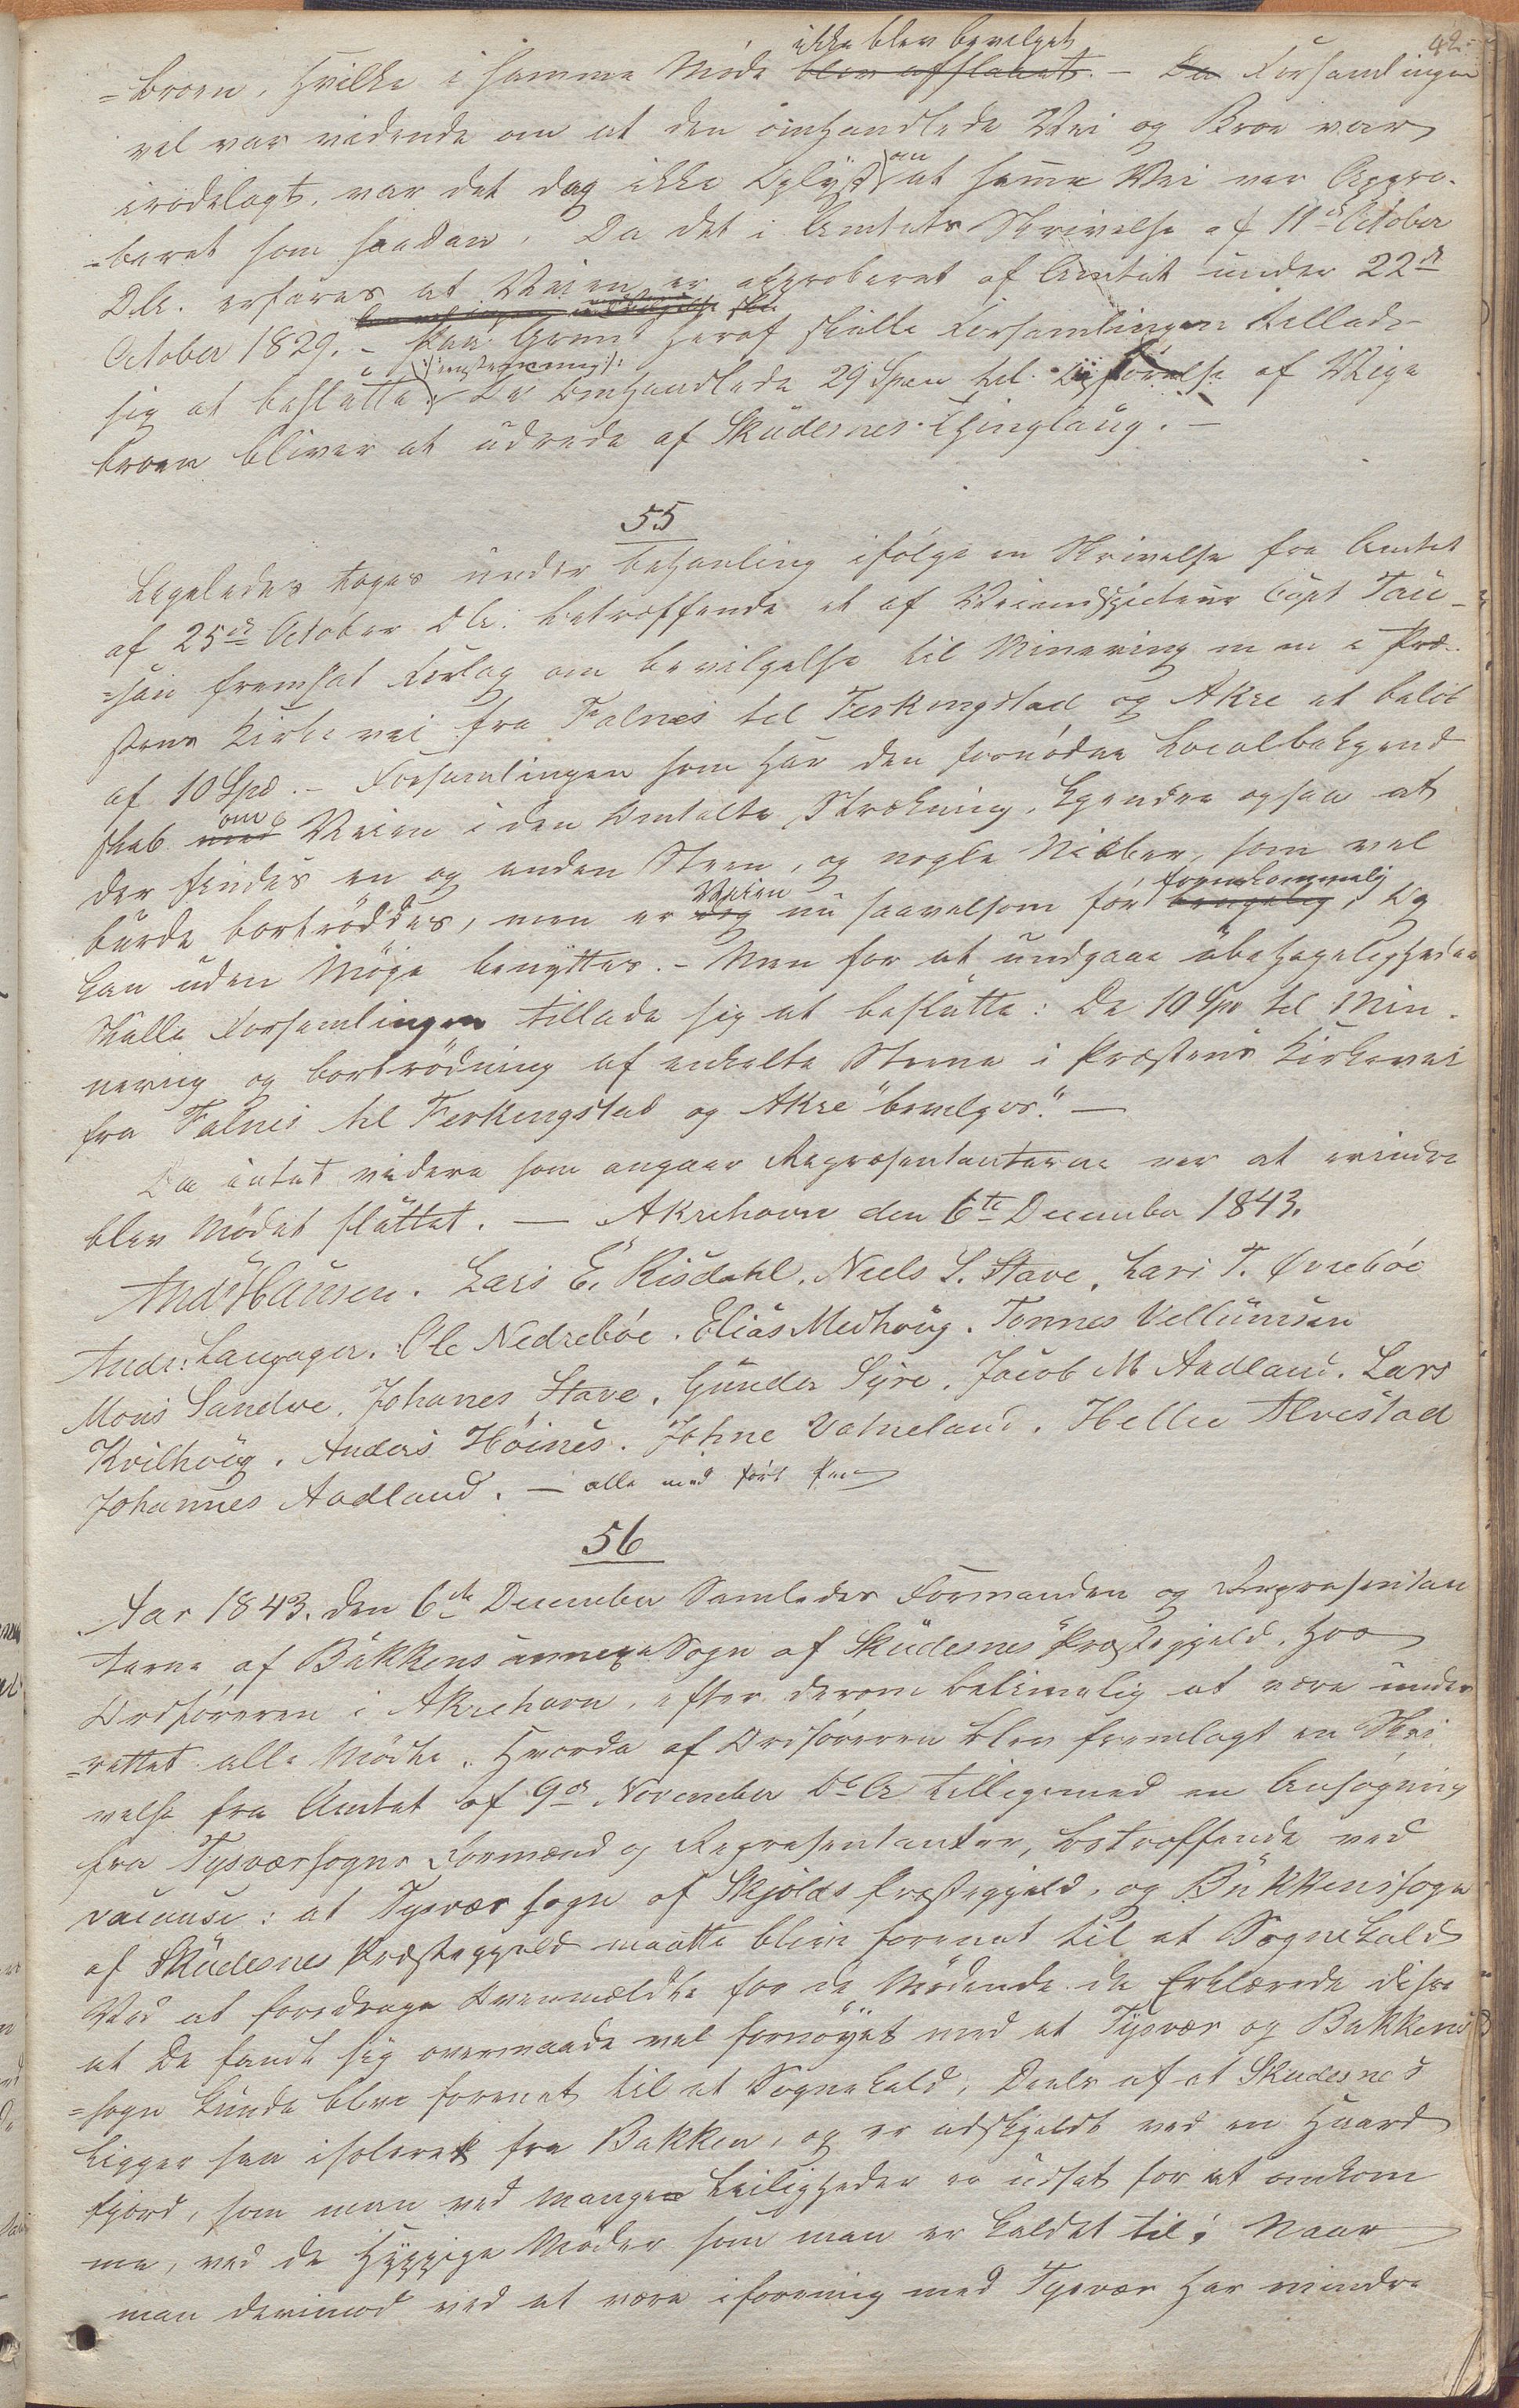 42.
ikke blev bevilget
=broen, hvilke i samme Møde blev afslaaet. – Da Forsamlingen
vel var vidende om at den omhandlede Vei og Broe var
ærodelagt, var det dog ikke Oplyst om at samme Vei var Appro-
=beret som saadan. Da det i Amtets Skrivelse af 11te October
D.A. erfares at Veien er approberet af Amtet under 22de
October 1829. – Paa Grund heraf skulle Forsamlingen tillade
sig at beslutte /:enstemmig:/ De Omhandlede 29 Spd til Opførelse af Meiga
broen bliver at udrede af Skudesnes Thinglaug. –
55
Ligeledes toges under behanling ifølge en Skrivelse fra Amtet
af 25de October D.A. betræffende et af Veiinspecteur Capt Tau-
=san fremsat Forlag om bevilgelse til Minering m m i Præ-
stens Kirkevei fra Falnes til Ferkingstad og Akre et beløb
af 10 Spd. – Forsamlingen som har den fornødne Localbekjend
skab med om Veien i den Omtalte Strækning, kjender ogsaa at
der findes en og anden Steen, og nogle Nibber, som vel
burde bortrøddes, men er dog Veien nu saavelsom før brugelig fremkommelig, og
kan uden Møye benyttes. – Men for at undgaae ubehageligheder
skulle Forsamlingen tillade sig at beslutte: De 10 Spd til Min-
nering og bortrødning af enkelte Stene i Præstens Kirkevei
fra Falnes til Ferkingstad og Akre "bevilges". –
Da intet videre som angaar Representanterne var at erindre
blev Mødet sluttet. – Akrehavn den 6te December 1843.
Andr Hansen. Lars E. Risdahl. Niels L. Stave. Lars T. Øvrebøe
Andr: Langager. Ole Nedrebøe. Elias Medhoug. Tønnes Vellumsen
Mons Sandve. Johanes Stave. Gunder Syre. Jacob M Aadland. Lars
Kvilhoug. Anders Høines. Johne Vatneland. Hellie Alvestad
Johannes Aadland. – alle med ført Pen
56
Aar 1843. den 6te December Samledes Formanden og Representan
terne af Bukkens annexe Sogn af Skudesnes Præstegjeld, hos
Ordføreren i Akrehavn, efter derom betimelig at være under
=rettet alle Mødte. Hvorda af Ordføreren blev fremlagt en Skri
velse fra Amtet af 9de November D.A. tilligemed en Ansøgning
fra Tysværsogns Formænd og Representanter, betræffende ved
vacanse: at Tysvær sogn af Skjolds Præstegjeld, og Bukkens sogn
af Skudesnes Præstegjeld maatte blive forenet til et Sognekald
Ved at foredrage Ovenmeldte for de Mødende da Erklærede disse
at De fandt sig overmaade vel fornøyet med at Tysvær og Bukkens
=sogn kunde blive forenet til et Sognekald, Deels af at Skudesnes
ligger saa isoleret fra Bukken, og er adskjeldt ved en Haard
fjord, som man ved mange Leiligheder er udsat for at omkom
me, ved de Hyppige Møder som man er kaldet til; Naar
man derimod ved at være iforening med Tysvær har mindre